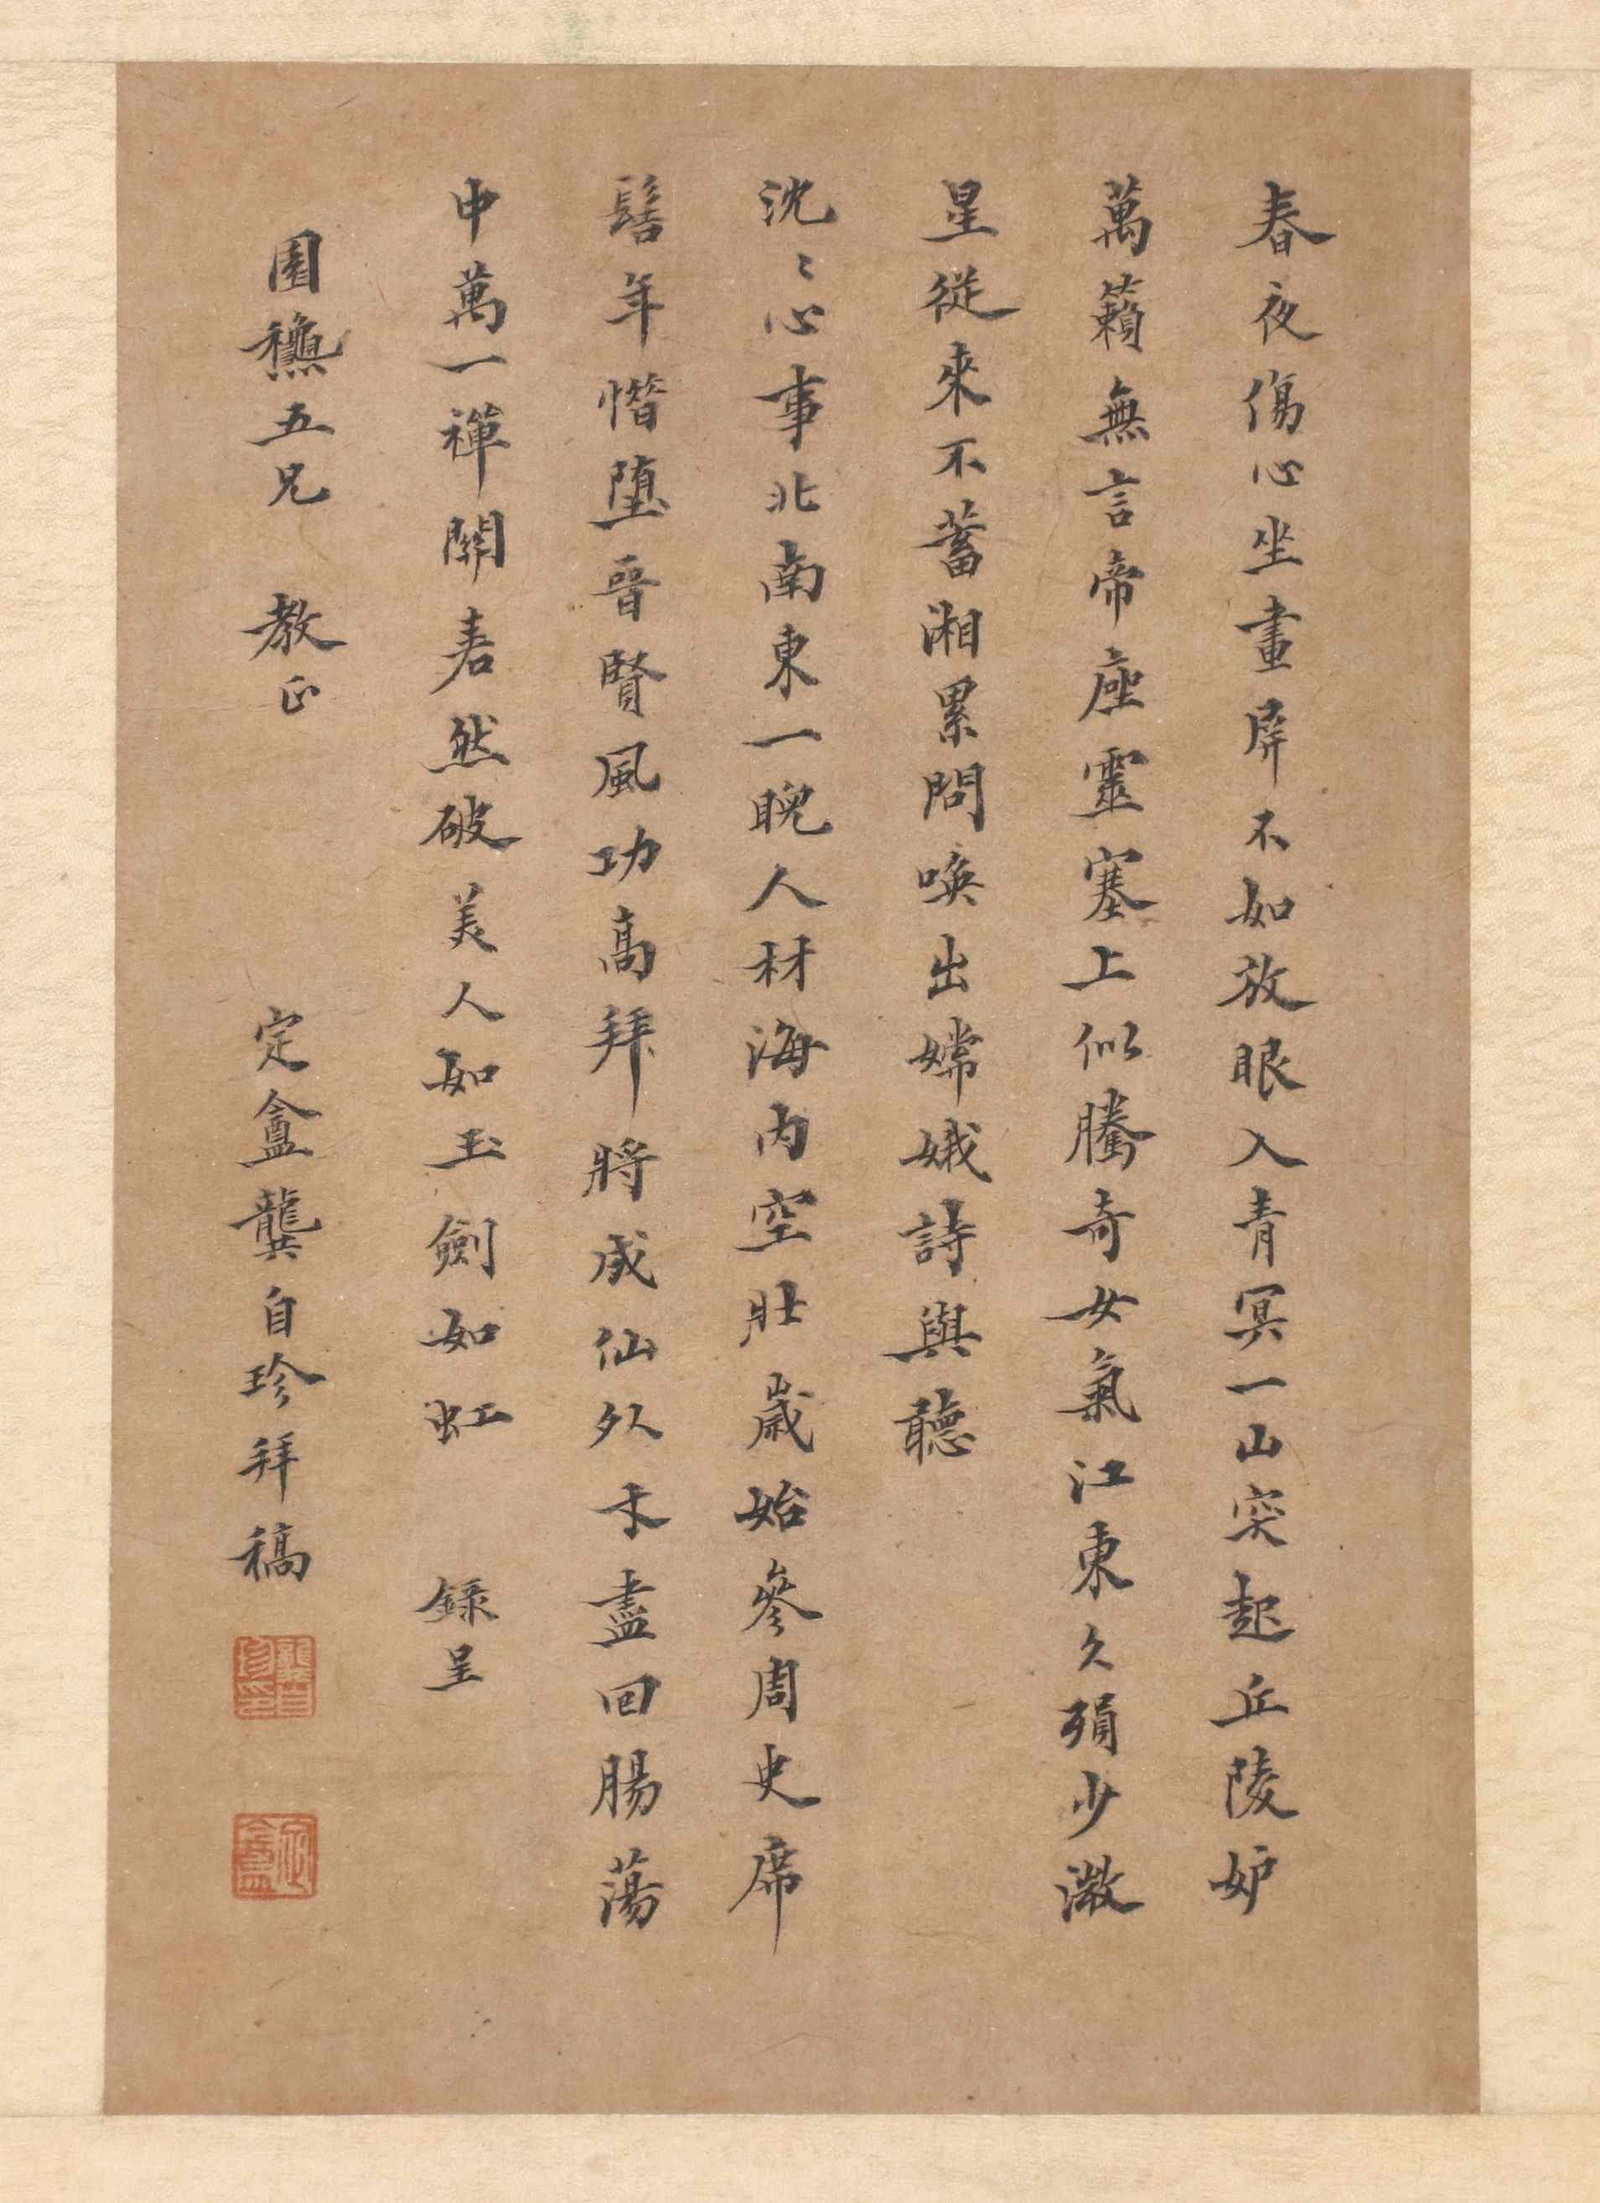 春夜傷心坐畫屏不如放眼入青冥一山突起丘陵妒
萬籟無言帝座靈塞上似騰奇女氣江東久殞少微
星從來不蓄湘累問喚出嫦娥詩與聽
沈〻心事北南東一睨人材海內空壯歲始參周史席
髫年惜墮晉賢風功高拜將成仙外才盡回腸蕩
中萬一禪關砉然破美人如玉劍如虹 錄呈
園龝五兄 教正 定盦龔自珍拜稿
龔自珍印
定盦